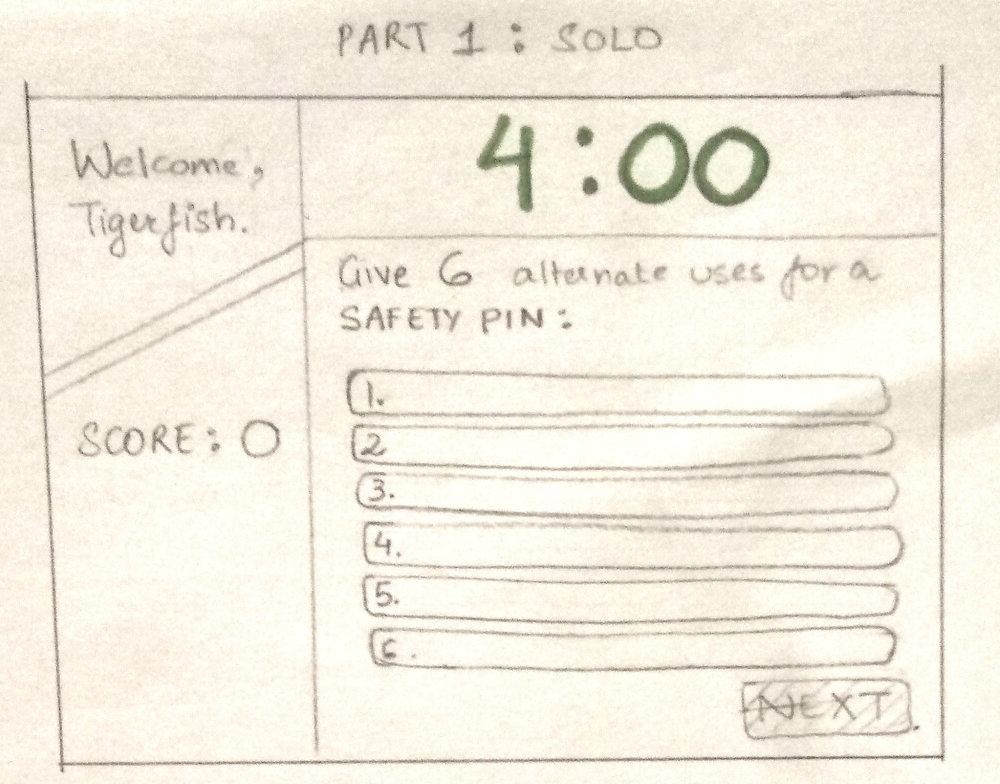 PART 1 : SOLO
Welcome,
Tigerfish.
SCORE: 0
4:00
Give 6 alternate uses for a
SAFETY PIN:
1.
2
3.
4.
5.
6.
NEXT